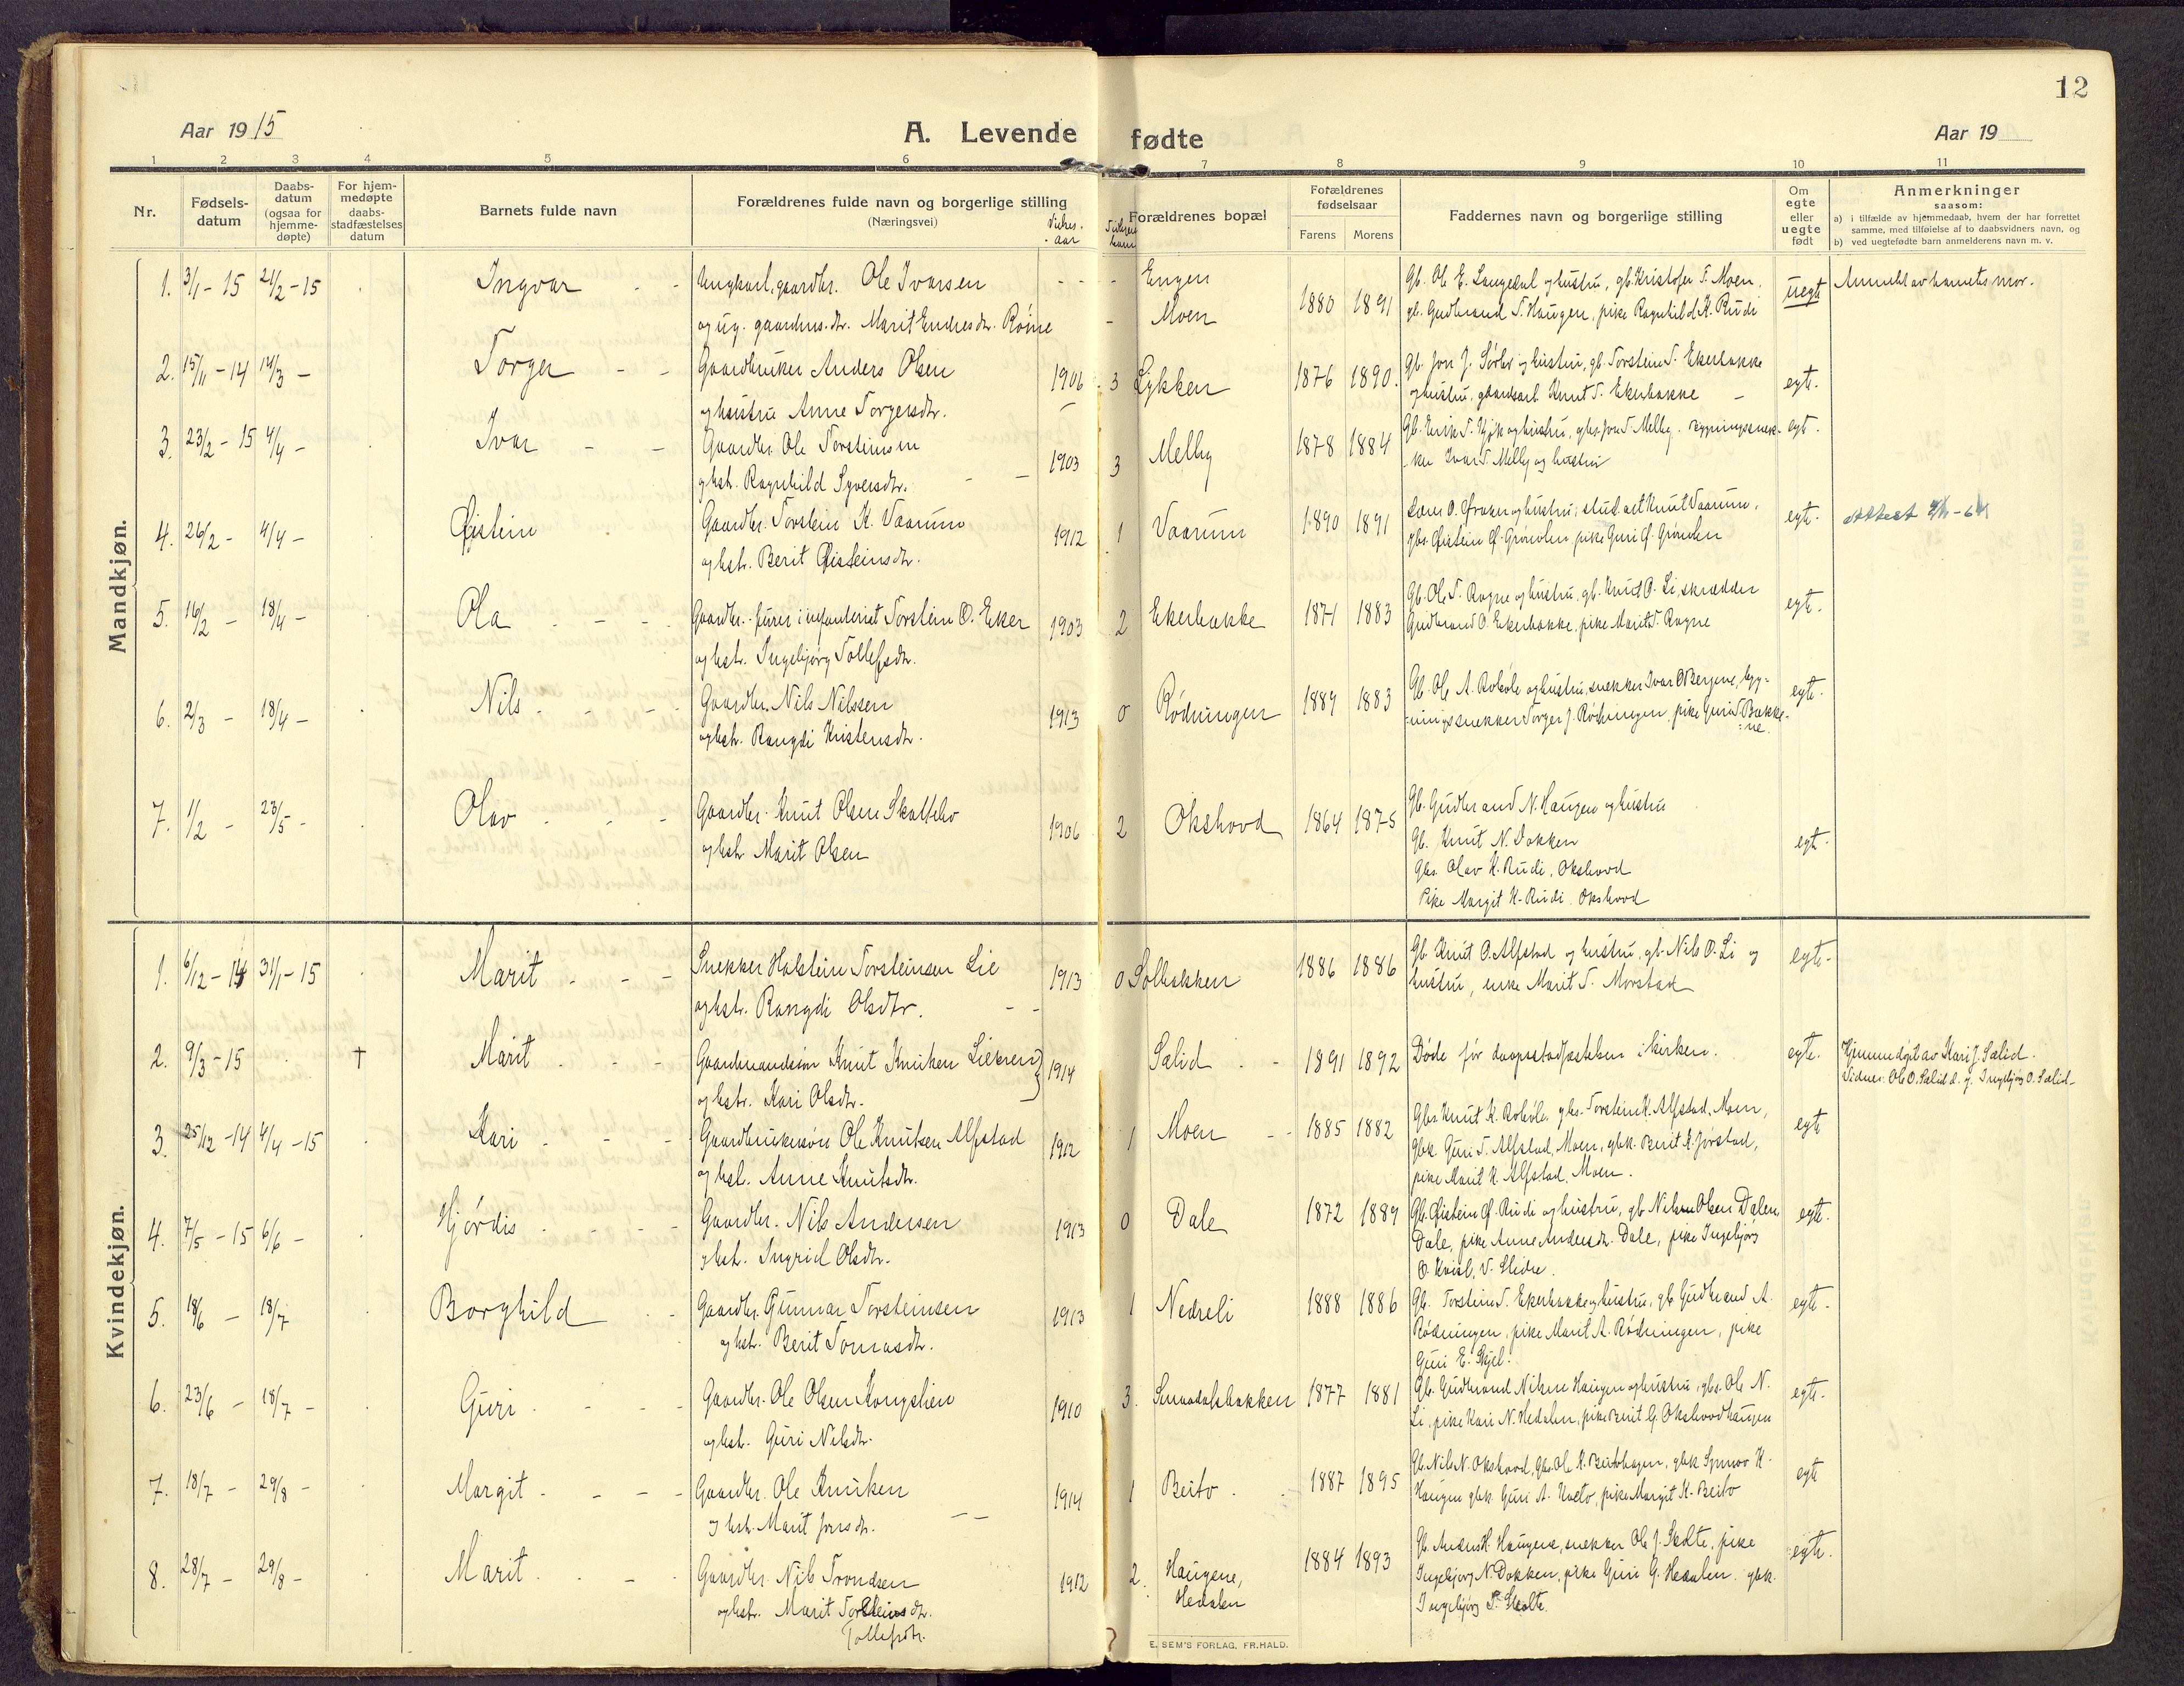 12
Aar 1915
A. Levende fødte
Aar 19
1 2 3 4 5 6 7 8 9 10 11
Nr.
Fødsels-
datum
Daabs-
datum
(ogsaa for
hjemme-
døpte)
For hjem-
medøpte
daabs-
stadfæstelses
datum
Barnets fulde navn
Forældrenes fulde navn og borgerlige stilling
(Næringsvei)
Vielses-
aar
Forældrenes bopæl
Forældrenes
fødselsaar
Farens Morens
Faddernes navn og borgerlige stilling
Om
egte
eller
uegte
født
Anmerkninger
saasom:
a) i tilfælde av hjemmedaab, hvem der har forrettet
samme, med tilføielse af to daabsvidners navn, og
b) ved uegtefødte barn anmelderens navn m. v.
Mandkjøn.
1. 3/1 - 15 21/2 - 15 Ingvar - - Ungkarl, gaardbr. Ole Ivarsen - - - Engen 1880 1891 Gb. Ole E. Langedal og hustru, gb. Kristofer T. Moen, uegte Anmeldt av barnets mor.
og ug. gaardbus. dr. Marit Endresdr. Røine - Moen gb. Gudbrand T. Haugen, pike Ragnhild K. Rudi
2. 15/11 - 14 14/3 - Torger - - Gaardbruker Anders Olsen 1906 3 Lykken 1876 1890. Gb. Jon J. Sørbø og hustru, gb. Torstein T. Ekerbakke egte.
og hustru Anne Torgersdtr. og hustru, gaardsarb. Knut T. Ekerbakke -
3. 23/2 - 15 4/4 - Ivar - - Gaardbr. Ole Torsteinsen 1903 3 Melby 1878 1884 Gb. Erik T. og hustru, gbs. Jon T. Melby. bygningssnek- egt.
og hst. Ragnhild Syversdtr. - - ker Ivar T. Melby og hustru
4. 26/2 - 4/4 - Øistein Gaardbr. Torstein K. Vaarum 1912 1 Vaarum 1890 1891 Lærer O. og hustru, stud. art. Knut Vaarum, egte.
og hst. Berit Øisteinsdtr. gbs. Øistein Ø. Grønolen, pike Guri Ø. Grønolen
5. 16/2 - 18/4 - Ola - - - Gaardbr. - furer i infanteriet Torstein O. Eker 1903 2 Ekerbakke 1871 1883 Gb. Ole T. Rogne og hustru, gb. Knut O. Li, skrædder egte.
og hst. Ingebjørg Tollefsdtr. Gudbrand O. Ekerbakke, pike Marit T. Rogne
6. 2/3 - 18/4 - Nils - - - Gaardbr. Nils Nilssen 1913 0 Rødningen 1889 1883 Gb. Ole A. Robøle og hustru, snekker Ivar O Bergene, byg- egte.
og hst. Rangdi Kristensdtr. ningssnekker Torger J. Rødningen, pike Guri T. Bakke-
ne.
7. 1/2 - 23/5 - Olav - - - Gaardbr. Knut Olsen Skattebo 1906 2 Okshovd 1864 1875 Gb. Gudbrand N. Haugen og hustru
og hst. Marit Olsen Gb. Knut N. Dokken egt.
Gbs. Olav K. Rudi, Okshovd
Pike Margit K. Rudi, Okshovd
Kvindekjøn.
1. 6/12 - 14 31/1 - 15 Marit - - - Snekker Halstein Torsteinsen Lie 1913 0 Solbakken 1886 1886 Gb. Knut O. Alfstad og hustru, gb. Nils O. Li og egte.
og hst. Rangdi Olsdtr. - - hustru, enke Marit T. Morstad
2. 9/3 - 15 † Marit - - - Gaardmandssøn Knut Knutsen Liekren 1914 Sælid - - 1891 1892 Døde før daapsstadfæstelsen i kirken. egte. Hjemmedøpt av Kari J. Sælid.
og hstr. Kari Olsdtr. Vidner: Ole O. Sælid d. y. Ingebjørg O. Sælid.
3. 25/12 - 14 4/4 - 15 Kari - - - Gaardbrukersøn Ole Knutsen Alfstad 1912 1 Moen - - 1885 1882 Gbs. Knut K. Robøle, gbs. Torstein K. Alfstad, Moen, egte
og hst. Anne Knutsdtr. gbk. Guri T. Alfstad, Moen, gbk. Berit K. Jørstad,
pike Marit K. Alfstad, Moen.
4. 7/5 - 15 6/6 - Hjørdis - - - Gaardbr. Nils Andersen 1913 0 Dale 1872 1889 Gb. Øistein Ø. Rudi og hustru, gb. Nils Olsen Dalen egte.
og hst. Ingrid Olsdtr. Dale, pike Anne Andersdtr. Dale, pike Ingebjørg
O. Kvisl, V. Slidre.
5. 18/6 - 18/7 Borghild - - Gaardbr. Gunnar Torsteinsen 1913 1 Nedreli 1888 1886 Gb. Torstein T. Ekerbakke og hustru, gb. Gudbrand A. egte.
og hst. Berit Tomasdtr. Rødningen, pike Marit A. Rødningen, pike
Guri E. Skjel.
6. 23/6 - 18/7 - Guri - - - Gaardbr. Ole Olsen Kongslien 1910 3. Smaadalsbakken 1877 1881 Gb. Gudbrand Nilsen Haugen og hustru, gbs. Ole N. egte.
og hst. Guri Nilsdtr. Li, pike Kari N. Hedalen, pike Berit G. Okshovdhaugen
7. 18/7 - 29/8 - Margit - - - Gaardbr. Ole Knutsen 1914 1 Beito - 1887 1895 Gb. Nils N. Okshovd, gbs. Ole K. Beitohagen, gbk. Synnøv K. egte
og hst. Marit Jonsdtr. - - Haugen gbk. Guri A. , pike Margit K. Beito
8. 28/7 - 29/8 - Marit - - - Gaardbr. Nils Trondsen 1912 2. Haugene, 1884 1893 Gb. Anders H. Haugene, snekker Ole J. , pike egte.
og hst. Marit Torsteinsdtr. Hedalen Ingebjørg N. Dokken, pike Guri G. Hedalen, gbk.
Tollefsdtr. Ingebjørg
E. SEM'S FORLAG, FR.HALD.